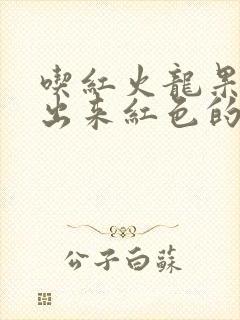 喫紅火龍果
出来紅色的
公子白蘇